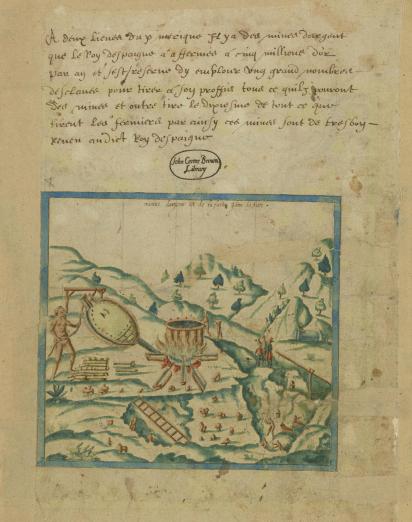 A deux lieues du mexique Il y a des mines dargent
que le Roy despaigne a affermés a cinq millions dor
par an et sest reserve dy employer ung grand nombre
desclaves pour tirer a son proffit tous ce quilz pouront
des mines et outre tire le dixiesme de tout ce que
tirent les fermiers par ainsy ces mines sont de tres bon
revenu audict Roy despaigne
John Carter Brown
Library
mines dargent et de la